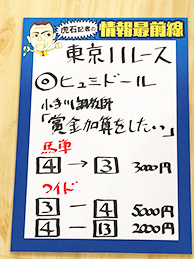 虎石記者の
情報最前線
東京11レース
◎ヒュミドール
小手川調教師
「賞金加算をしたい」
馬単
4→3 3000円
ワイド
3-4 5000円
4-13 2000円